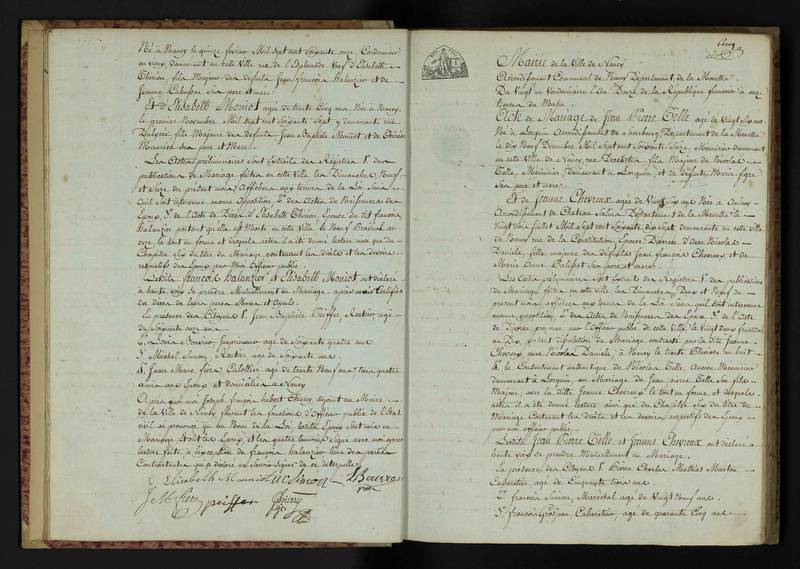 Né à Nancy le quinze février Mil sept cent soixante onze Cordonnier
en vieux, demeurant en cette ville rue de l'Esplanade Veuf d'Elisabeth
Thirion fils Majeur des défunts Jean François Balanzier et de
Jeanne ses père et mère
Et d'Elisabeth Moniot agée de trente Cinq ans Née à Nancy
le premier Novembre Mil sept cent soixante sept y demeurante rue
fille Majeure des défunts Jean Baptiste Moniot et de Thérèse
ses père et Mère.
Les Actes préliminaires sont Extraits des Régistres 1°. des
publications de Mariage faites en cette ville les Dimanches Neuf
et Seize du présent mois, affichées aux termes de la Loi sans
qu'il soit intervenue aucune Opposition 2°. des Actes de Naissances des
Epoux, 3°. de l'Acte de Décès d'Elisabeth Thirion Epouse du dit françois
Balanzier portant qu'elle est Morte en cette ville le Neuf
onze, le tout en forme et desquels actes il a été donné lecture ainsi que du
Chapitre Six du titre du Mariage contenant les droits et les devoirs
respectifs des Epoux par Moi Officier public.
Lesdits françois Balanzier et Elisabeth Moniot ont déclaré
à haute voix se prendre Mutuellement en Mariage, après avoir
du décès de leurs pères Mères et Ayeuls.
En présence des Citoyens 1°. Jean Baptiste Peiffer, Rentier agé
de soixante onze ans
2°. Louis Bouvier Imprimeur agé de soixante quatre ans
3°. Michel Simon, Rentier agé de soixante ans.
4°. Jean Marie fiere Culottier agé de trente Neuf ans, tous quatre
amis aux Epoux et domiciliés à Nancy
Après quoi moi Joseph françois hubert Thiery adjoint au Maire
de la Ville de Nancy faisant les fonctions d'Officier public de l'état
civil ai prononcé qu'au Nom de la Loi lesdits Epoux sont unis en
Mariage et ont les Epoux et les quatre témoins signé avec moi après
lecture faite à l'exception de françois Balanzier l'une des parties
Contractantes qui a déclaré ne savoir signer de ce interpellé
Elisabeth Moniot M Simon L Bouvier
J M fiere peiffer Thiery
Cinq
Mairie de la Ville de Nancy
Arrondissement Communal de Nancy Département de la Meurthe
Du Vingt un Vendemiaire l'An Douze de la République française à onze
heures du Matin
Acte de Mariage de Jean Pierre Telle agé de Vingt six ans
Né à Lorquin Arrondissement de Sarrebourg Département de la Meurthe
le dix Neuf Decembre Mil Sept cent Soixante Seize, Menuisier demeurant
en cette ville de Nancy, rue fils Majeur de Nicolas
Telle, Menuisier demeurant à Lorquin, et de défunte Marie
ses père et mere.
Et de Jeanne Chevreux agée de Vingt six ans Née à
Arrondissement de Chateau Salins Département de la Meurthe le
Vingt trois Juillet Mil Sept cent soixante dix sept demeurante en cette ville
de Nancy rue de la Constitution, Epouse Divorcée d'avec Nicolas
Daniele, fille majeure des défunts Jean François Chevreux et de
Marie Anne ses père et meres.
Les Actes préliminaires sont Extraits des Registres 1°. des publications
de Mariage faites en cette ville les Dimanches, Deux et Neuf du
présent mois, affichées aux termes de la Loi sans qu'il soit intervenue
aucune opposition, 2°. des Actes de Naissances des Epoux 3°. de l'Acte
de Divorce prononcé par l'officier public de cette Ville, le Vingt deux
an Dix, portant dissolution du Mariage contracté par la dite Jeanne
Chevreux, avec Nicolas Daniele, à Nancy le trente an huit
4°. le Consentement authentique de Nicolas Telle Ancien Menuisier
demeurant à Lorquin au Mariage de Jean pierre Telle son fils
Majeur, avec la ditte Jeanne Chevreux, le tout en forme, et desquels
actes il a été donné lecture ainsi que du Chapitre Six du titre du
Mariage Contenant les droits et les devoirs respectifs des Epoux
par moi officier public.
Lesdits Jean Pierre Telle et Jeanne Chevreux ont déclaré à
haute voix se prendre Mutuellement en Mariage.
En présence des Citoyens 1°. Pierre Charles Mathias Marton
Cabaretier agé de Cinquante trois ans.
2°. françois Simon, Maréchal agé de Vingt Neuf ans.
3°. françois Grosjean, Cabaretier, agé de quarante Cinq ans